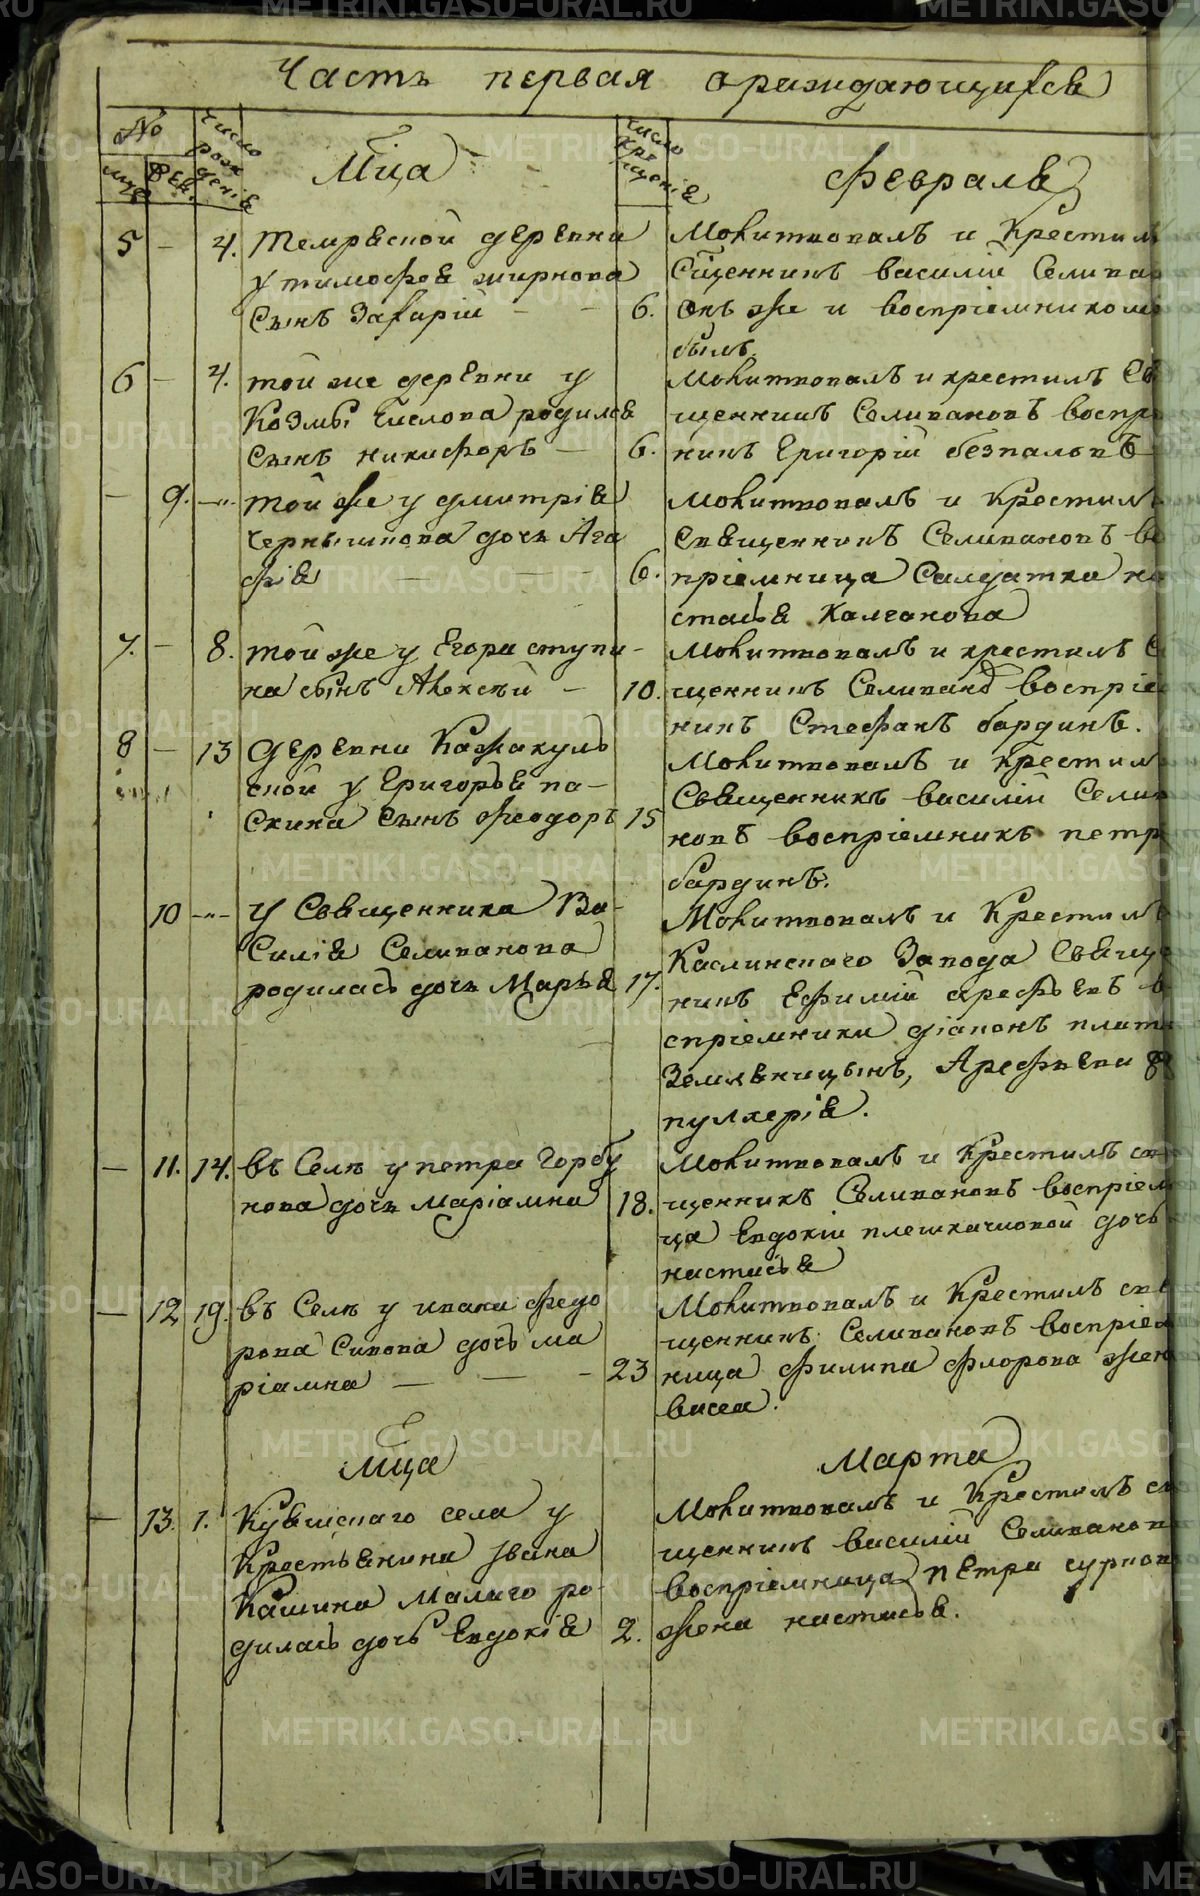 Часть первая ораждающихся
№
муж
жен.
число рождения
Мца
число крещения
Февраля
5 – 4. Темряской деревни
у тимофея жирнова
Сынъ Захарій – –
6.
Молитвовалъ и Крестилъ
Сщенникъ василий Селива
Онъ же и восприемником
былъ.
6 – 4. той же деревни у
Козмы Кислова родился
Сынъ никифоръ –
6.
Молитвовалъ и крестилъ Св
щенникъ Селивановъ воспри
никъ Григорій безпаловъ
– 9. –"– той же у дмитрія
Чернышкова дочь Ага
фія – – –
6.
Молитвовалъ и Крестилъ
Священникъ Селивановъ во
приемница Салдатка на
стасья Калганова
7. – 8. той же у Егора ступи-
на сынъ Алексѣй –
10.
Молитвовалъ и крестилъ С
щенникъ Селиванов восприе
никъ Стефанъ бардинъ.
8 – 13 Деревни Кажакуль
ской у Григорья па-
скина Сынъ Феодоръ
15
Молитвовалъ и Крестил
Священникъ василій Селив
новъ восприемникъ петр
бардинъ.
10 –"– У Священника Ва-
силія Селиванова
родилась дочь Марья
17.
Молитвовалъ и Крестилъ
Каслинскаго Завода Свяще
никъ Ефимій арефьевъ в
сприемники діаконъ плато
Земляницынъ, Арефьева
пулхерія.
– 11. 14. въ Селѣ у петра Горбу
нова дочь Маріамна
18.
Молитвовалъ и Крестилъ свя
щенникъ Селивановъ восприем
ца Евдокіи плешкачиовой дочь
настасья
– 12 19. въ Селѣ у ивана Федо
рова Сивова дочь ма
ріамна – – –
23
Молитвовалъ и Крестилъ свя
щенникъ Селивановъ восприем
ница Филипа Флорова жена
васса.
Мца
Марта
– 13. 1. Куяшскаго села у
Крестьянина Ивана
Кашина Малаго ро-
дилась дочь Евдокія
2.
Молитвовалъ и Крестилъ свя
щенникъ василий Селиванов
восприемница петра сурнов
жена настасья.
METRIKI.GASO-URAL.RU